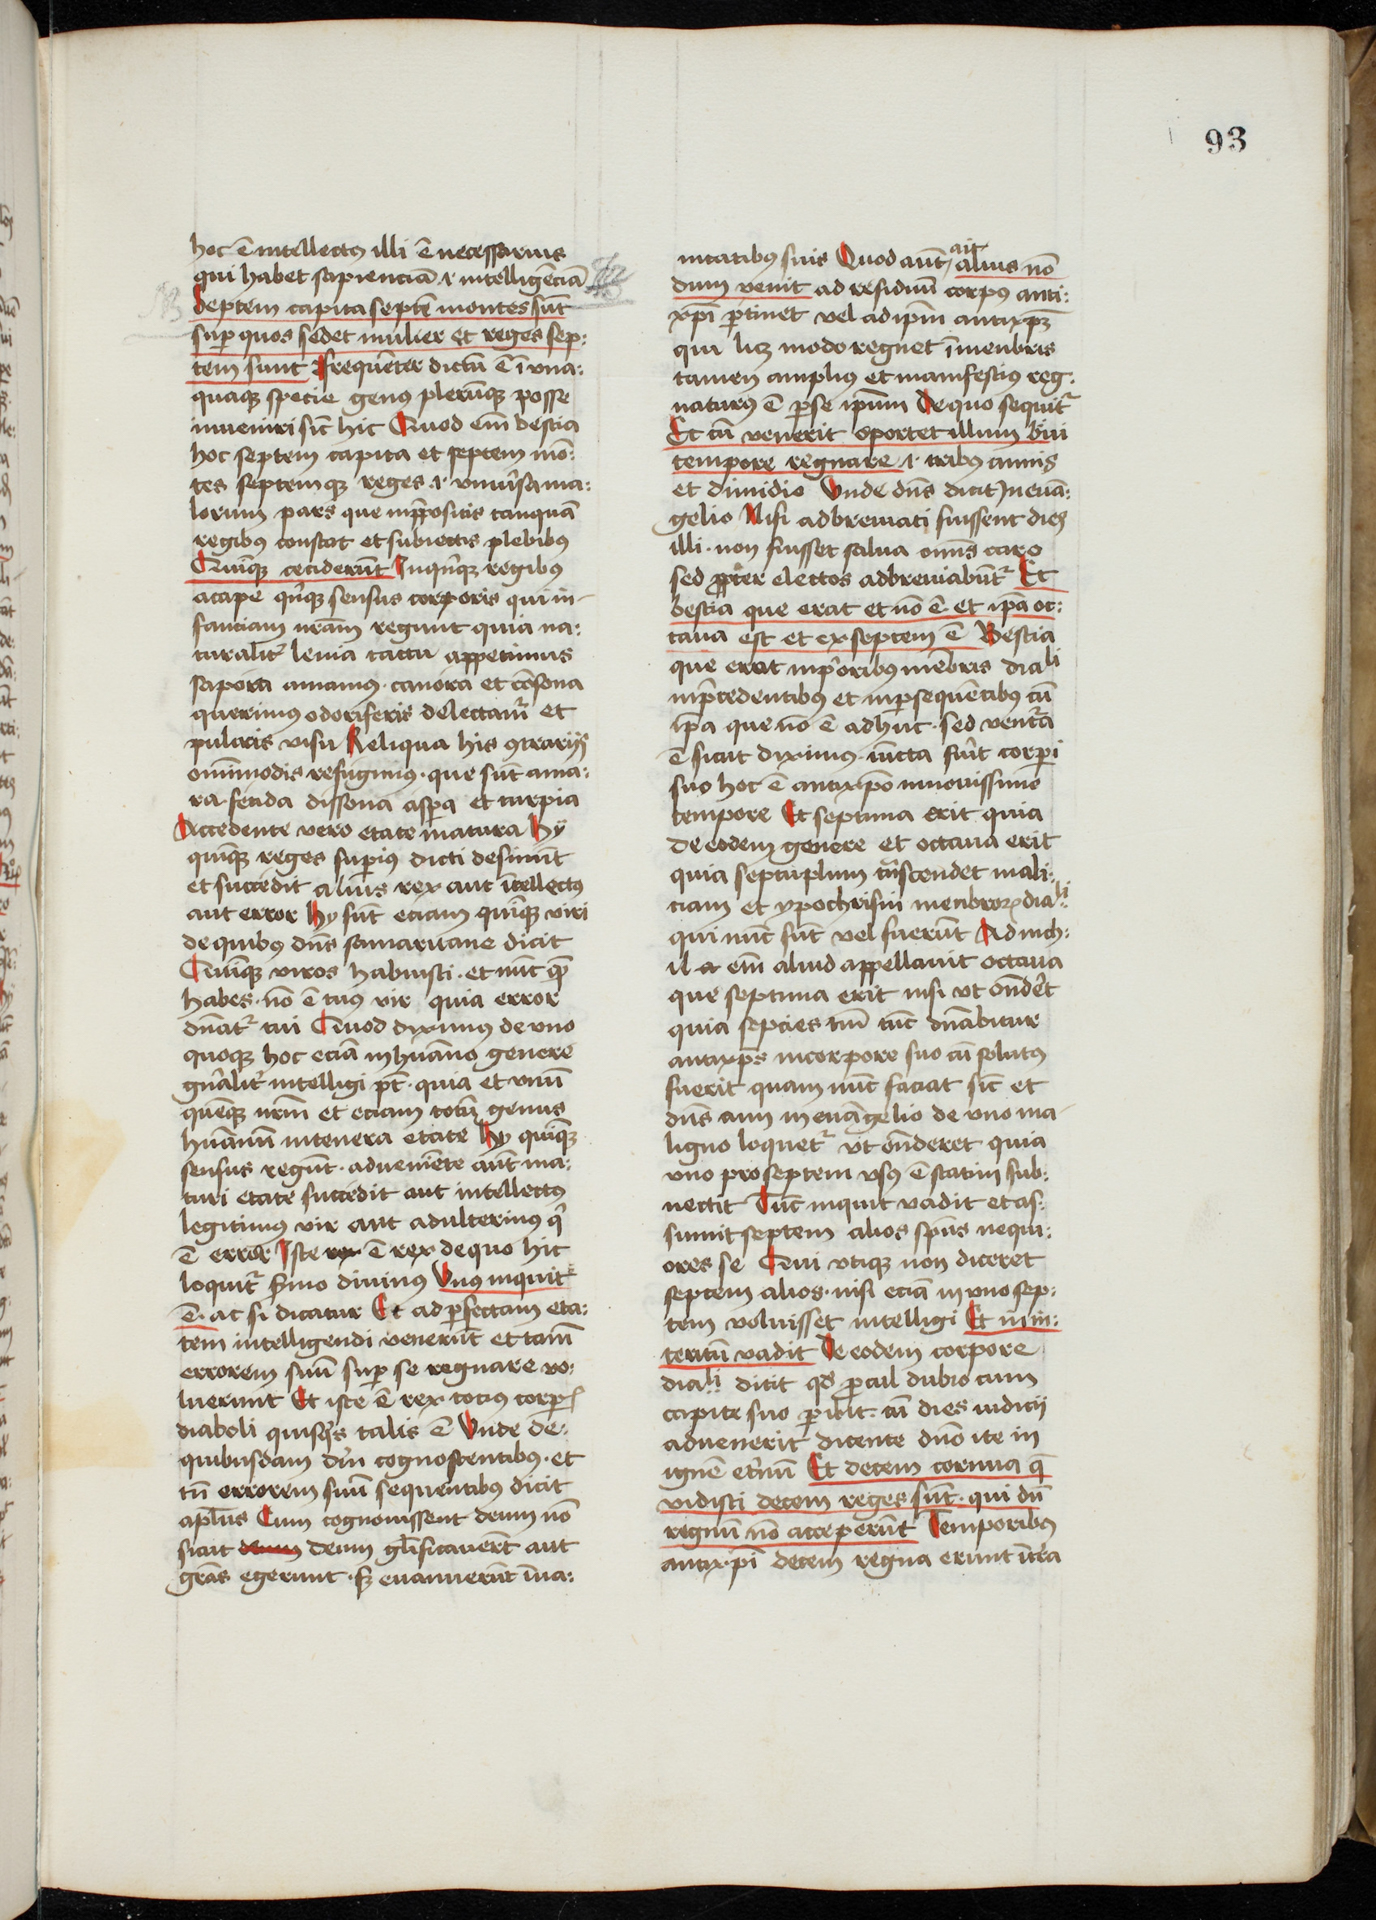 93
hoc ē intellectus illi ē necessarius
qui habet sapienciā ⁊ intelligēciā
Septem capita septē montes sūt
sup̄ quos sedet mulier et reges sep:
tem sunt Frequēter dictū ē ī vna:
quaqꝫ specie genus plerūqꝫ posse
inueniri sic̄ hic Quod em̄ bestia
hoc septem capita et septem mō:
tes septemqꝫ reges ⁊ vniu̾sa ma:
lorum pars que in p̄positis tanquā
regibus constat et subiectis plebibus
Quinqꝫ ceciderūt In qn̄qꝫ regibus
accipe qn̄qꝫ sensus corporis qui in-
fantiam nr̄am regunt quia na:
turalit̾ lenia tactu appetimus
sapora amamus canora et cōsona
querimus odoriferis delectam̾ et
pulcris visu Reliqua his ꝯtrarijs
om̄imodis refugimus que sūt ama:
ra fetida dissona aspa et turpia
Accedente vero etate matura hÿ
quīqꝫ reges sup̄ius dicti desinūt
et succedit alius rex aut ītellectus
aut error hÿ sūt eciam quīqꝫ viri
de quibus dn̄s samaritane dicit
Quīqꝫ viros habuisti et nūc quē
habes nō ē tuus vir quia error
dn̄at̾ tui Quod diximus de vno
quoqꝫ hoc eciā in hūano genere
gn̄alit̾ intelligi pt̄ quia et vnū
quēqꝫ nr̄m et eciam totū genus
hūanū in tenera etate hÿ quīqꝫ
sensus regūt adueniēte aūt ma:
turi etate succedit aut intellectus
legitimus vir aut adulterinus q̾
ē error Iste rex ē rex de quo hic
loquit̾ sermo diuinus Vnus inquit
ē ac si dicatur Et ad p̄fectam eta:
tem intelligendi venerūt et tamē
errorem suū sup̄ se regnare vo:
luerunt Et iste ē rex tocius corp̄is
diaboli quisqs talis ē Vnde de
quibusdam dm̄ cognoscentibus et
tn̄ errorem suū sequentibus dicit
apl̄us Cum cognouissent deum nō
sicut deum deum glīficauerūt aut
grās egerunt sꝫ euanuerūt ī va:
nitatibus suis Quod aūt ait alius nō
dum venit ad residuū corpus anti:
xp̄i p̄tinet vel ad ip̄m antixp̄m
qui licꝫ modo regnet ī menbris
tamen amplius et manifestius reg:
naturus ē p̄ se ip̄um De quo sequit̾
Et cū venerit oportet illum b̾ui
tempore regnare ⁊ tribus annis
et dimidio Vnde dn̄s dicit In euā:
gelio Nisi adbreuiati fuissent dies
illi non fuisset salua om̄s caro
sed ꝓpter electos adbreuiabūt̾ Et
bestia que erat et nō ē et ip̄a oc:
taua est et ex septem ē Bestia
que erat in p̾oribus mēbris diali
in p̄cedentibus et in p̄sequētibus cū
ip̄a que nō ē adhuc sed ventura
ē sicut diximus iūcta fūit corpi
suo hoc ē antixp̄o in nouissimo
tempore Et septima erit quia
de eodem genere et octaua erit
quia septuplum trāscendet mali:
ciam et ypochrisim mēbroꝝ diali
qui nūc sūt vel fuerūt Ad nich:
il a em̄ aliud appellauit octaua
que septima erit nisi vt on̄deret
quia septies tm̄ tūc dn̄abitur
antixp̄s in corpore suo cū solutus
fuerit quam nūc faciat sic̄ et
dn̄s cum in euāgelio de vno ma-
ligno loquet̾ vt on̄deret quia
vno pro septem vsus ē statim sub:
nectit Tūc inquit vadit et as:
sumit septem alios sp̄us nequi:
ores se Qui vtiqꝫ non diceret
septem alios nisi eciā in vno sep:
tem voluisset intelligi Et in in:
teritū vadit De eodem corpore
diali dicit qd̾ p̄cul dubio cum
capite suo p̄ibit cū dies iudicij
aduenerit dicente dn̄o ite in
ignē et̾nū Et decem cornua q̄
vidisti decem reges sūt qui dū
regnū nō acceperūt Temporibus
antixpī decem regna erunt ītra